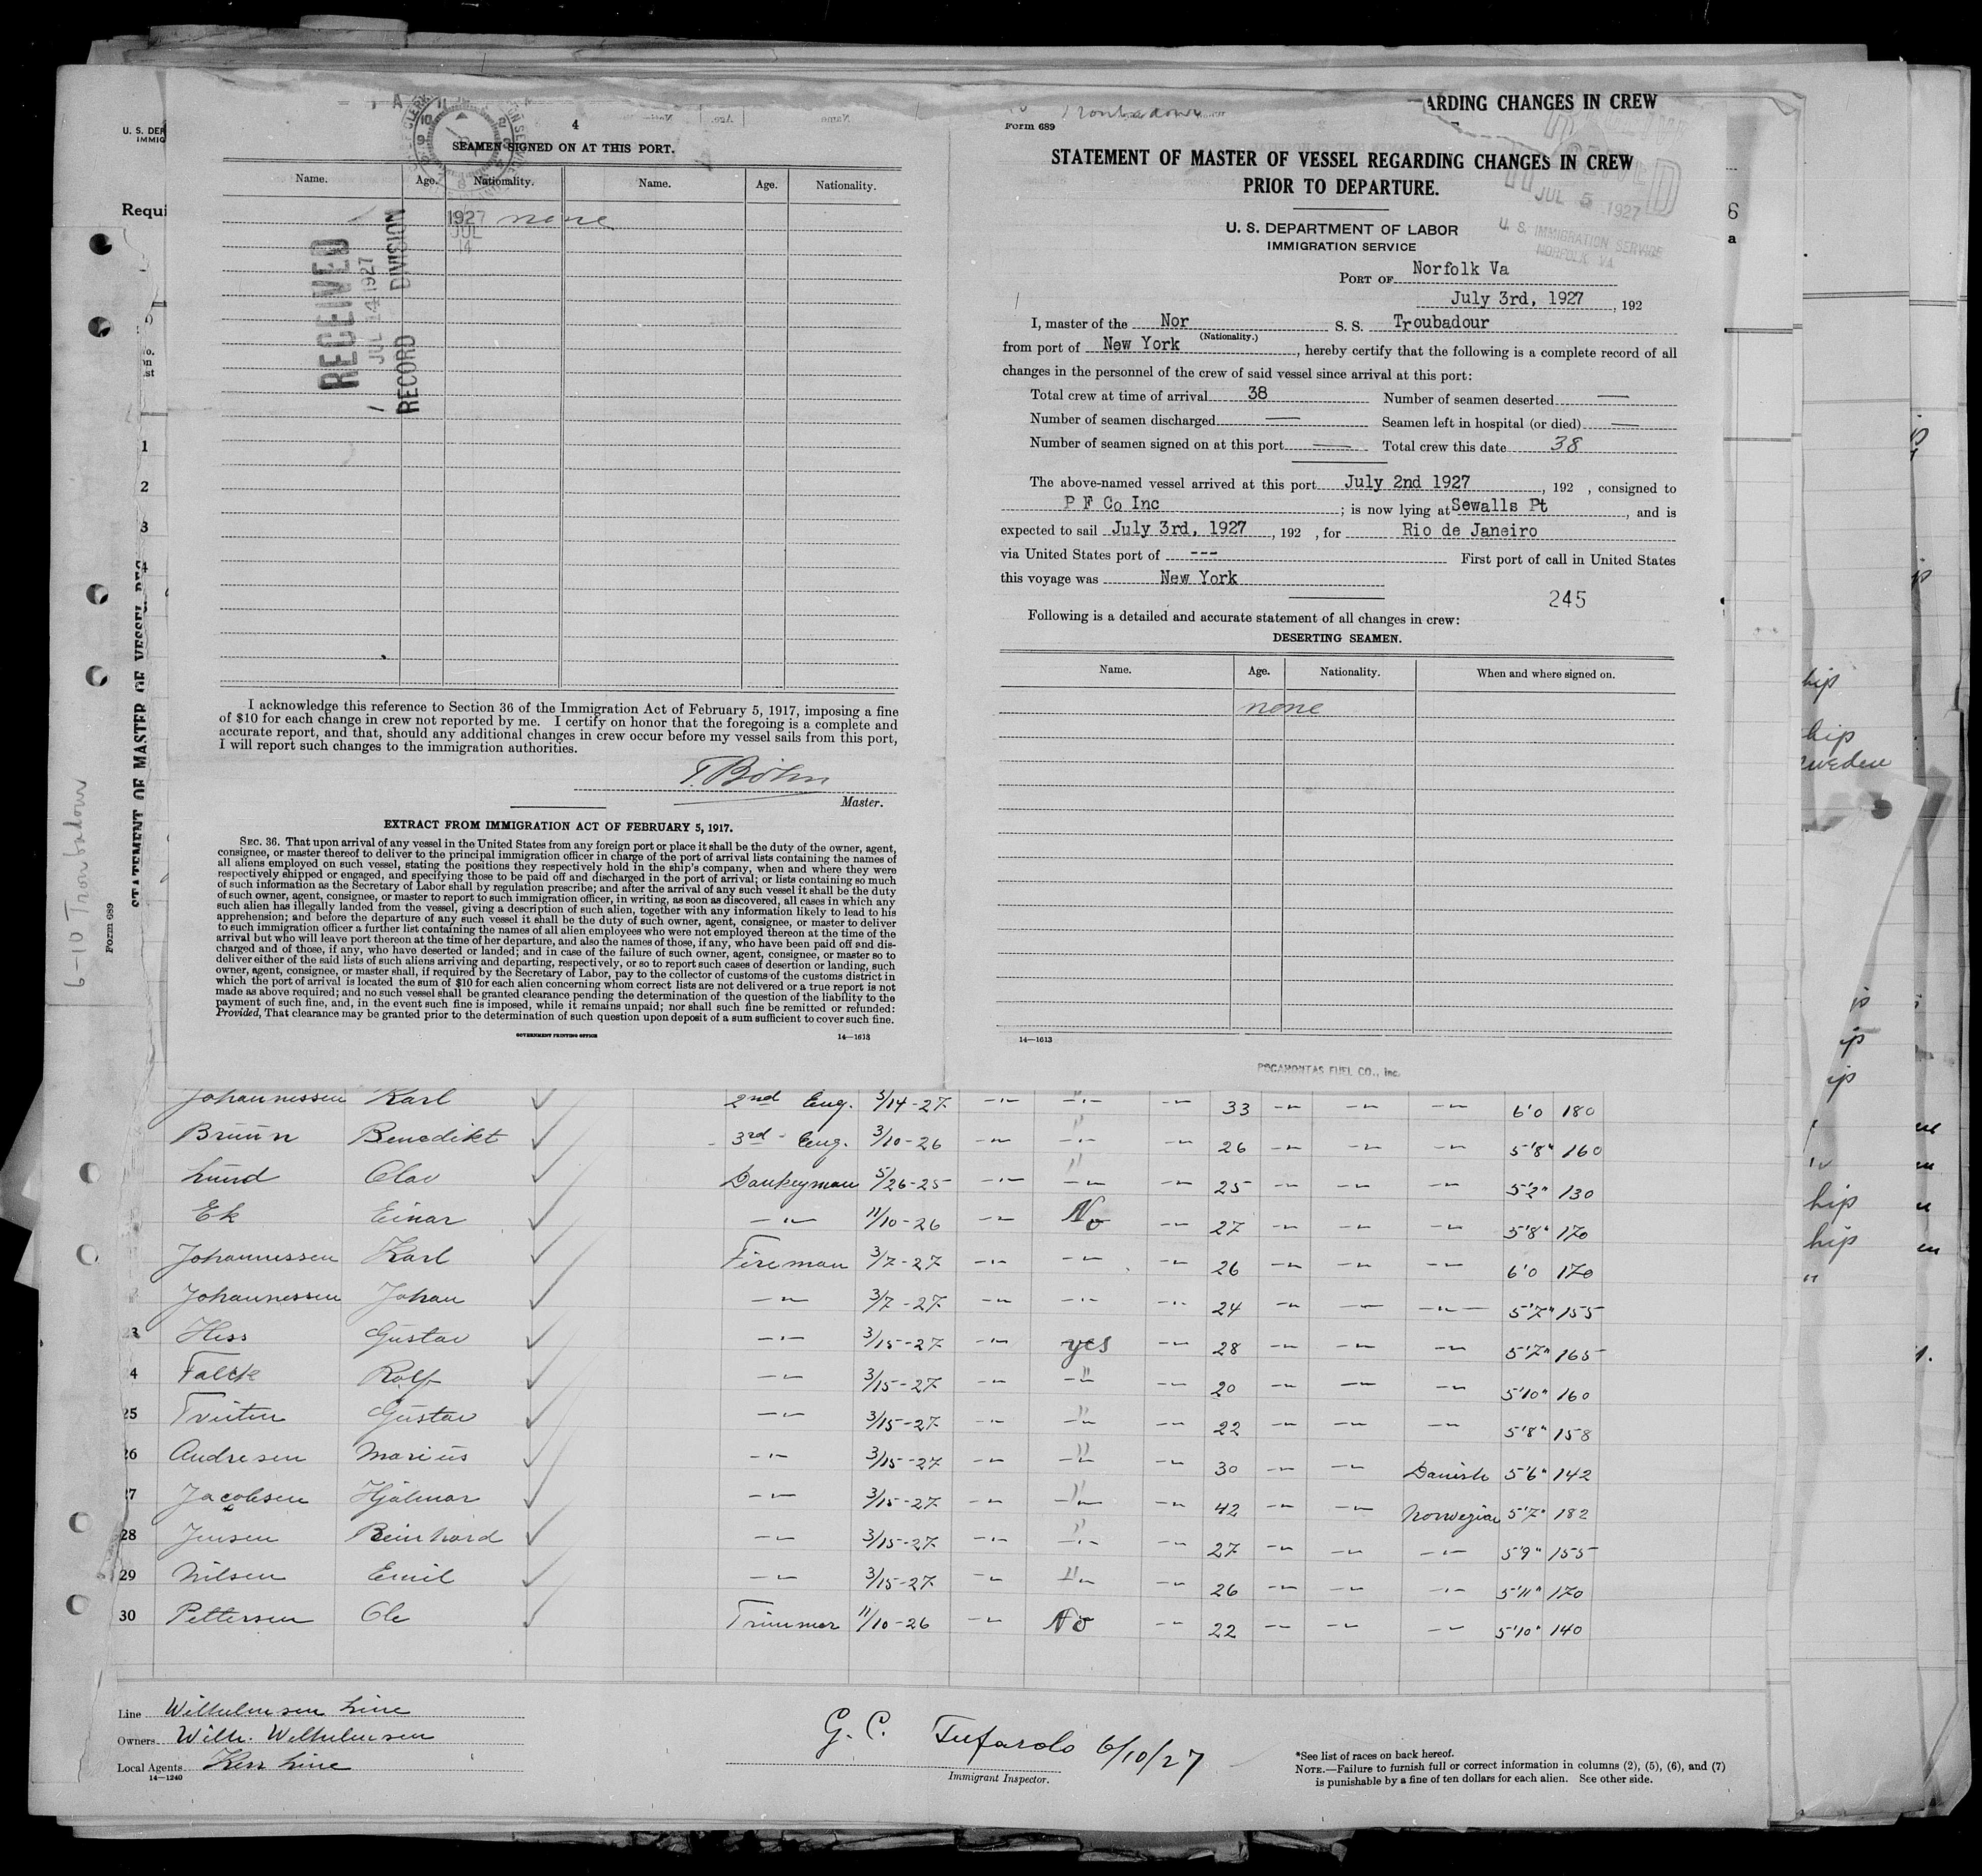 4
SEAMEN SIGNED ON AT THIS PORT.
Name. Age. Nationality. Name. Age. Nationality.
1927 none
JUL
14
RECEIVED
JUL 14 1927
RECORD DIVISION
I acknowledge this reference to Section 36 of the Immigration Act of February 5, 1917, imposing a fine
of $10 for each change in crew not reported by me. I certify on honor that the foregoing is a complete and
accurate report, and that, should any additional changes in crew occur before my vessel sails from this port,
I will report such changes to the immigration authorities.
T. Bohn
Master.
EXTRACT FROM IMMIGRATION ACT OF FEBRUARY 5, 1917.
SEC. 36. That upon arrival of any vessel in the United States from any foreign port or place it shall be the duty of the owner, agent,
consignee, or master thereof to deliver to the principal immigration officer in charge of the port of arrival lists containing the names of
all aliens employed on such vessel, stating the positions they respectively hold in the ship's company, when and where they were
respectively shipped or engaged, and specifying those to be paid off and discharged in the port of arrival; or lists containing so much
of such information as the Secretary of Labor shall by regulation prescribe; and after the arrival of any such vessel it shall be the duty
of such owner, agent, consignee, or master to report to such immigration officer, in writing, as soon as discovered, all cases in which any
such alien has illegally landed from the vessel, giving a description of such alien, together with any information likely to lead to his
apprehension; and before the departure of any such vessel it shall be the duty of such owner, agent, consignee, or master to deliver
to such immigration officer a further list containing the names of all alien employees who were not employed thereon at the time of the
arrival but who will leave port thereon at the time of her departure, and also the names of those, if any, who have been paid off and dis-
charged and of those, if any, who have deserted or landed; and in case of the failure of such owner, agent, consignee, or master so to
deliver either of the said lists of such aliens arriving and departing, respectively, or so to report such cases of desertion or landing, such
owner, agent, consignee, or master shall, if required by the Secretary of Labor, pay to the collector of customs of the customs district in
which the port of arrival is located the sum of $10 for each alien concerning whom correct lists are not delivered or a true report is not
made as above required; and no such vessel shall be granted clearance pending the determination of the question of the liability to the
payment of such fine, and, in the event such fine is imposed, while it remains unpaid; nor shall such fine be remitted or refunded:
Provided, That clearance may be granted prior to the determination of such question upon deposit of a sum sufficient to cover such fine.
GOVERNMENT PRINTING OFFICE 14—1613
ARDING CHANGES IN CREW
Troubadour
Form 689
STATEMENT OF MASTER OF VESSEL REGARDING CHANGES IN CREW
PRIOR TO DEPARTURE.
RECEIVED
JUL 5 1927
U. S. IMMIGRATION SERVICE
NORFOLK VA
U. S. DEPARTMENT OF LABOR
IMMIGRATION SERVICE
PORT OF Norfolk Va
July 3rd, 1927, 192
I, master of the Nor S. S. Troubadour
(Nationality.)
from port of New York, hereby certify that the following is a complete record of all
changes in the personnel of the crew of said vessel since arrival at this port:
Total crew at time of arrival 38 Number of seamen deserted —
Number of seamen discharged — Seamen left in hospital (or died) —
Number of seamen signed on at this port — Total crew this date 38
The above-named vessel arrived at this port July 2nd 1927, 192 , consigned to
P F Co Inc ; is now lying at Sewalls Pt, and is
expected to sail July 3rd, 1927, 192 , for Rio de Janeiro
via United States port of --- First port of call in United States
this voyage was New York
245
Following is a detailed and accurate statement of all changes in crew:
DESERTING SEAMEN.
Name. Age. Nationality. When and where signed on.
none
14—1613
POCAHONTAS FUEL CO., Inc.
U. S. DEP
IMMIG
Requi
1
2
3
4
STATEMENT OF MASTER OF VESSEL REG
Form 689
6-10 Troubadour
6
a
hip
hip
Sweden
ip
ip
hip
hip
Johannessen Karl 2nd Eng. 3/14-27 -"- -"- -"- 33 -"- -"- -"- 6'0 180
Bruün Benedikt 3rd Eng. 3/10-26 -"- -"- -"- 26 -"- -"- -"- 5'8" 160
Lund Olav Donkeyman 5/26-25 -"- -"- -"- 25 -"- -"- -"- 5'2" 130
Ek Einar -"- 11/10-26 -"- No -"- 27 -"- -"- -"- 5'8" 170
Johannessen Karl Fireman 3/7-27 -"- -"- -"- 26 -"- -"- -"- 6'0 170
Johannessen Johan -"- 3/7-27 -"- -"- -"- 24 -"- -"- -"- 5'7" 155
23 Hess Gustav -"- 3/15-27 -"- yes -"- 28 -"- -"- -"- 5'7" 165
4 Falck Rolf -"- 3/15-27 -"- -"- -"- 20 -"- -"- -"- 5'10" 160
25 Gustav -"- 3/15-27 -"- -"- -"- 22 -"- -"- -"- 5'8" 158
26 Andresen Marius -"- 3/15-27 -"- -"- -"- 30 -"- -"- Danish 5'6" 142
27 Jacobsen Hjalmar -"- 3/15-27 -"- -"- -"- 42 -"- -"- Norwegian 5'7" 182
28 Jensen Reinhard -"- 3/15-27 -"- -"- -"- 27 -"- -"- -"- 5'9" 155
29 Nilsen Emil -"- 3/15-27 -"- -"- -"- 26 -"- -"- -"- 5'11" 170
30 Pettersen Ole Trimmer 11/10-26 -"- No -"- 22 -"- -"- -"- 5'10" 140
Line Wilhelmsen Line
Owners Wilh. Wilhelmsen
Local Agents Kerr Line
14—1240
G. C. Tufarolo 6/10/27
Immigrant Inspector.
*See list of races on back hereof.
NOTE.—Failure to furnish full or correct information in columns (2), (5), (6), and (7)
is punishable by a fine of ten dollars for each alien. See other side.